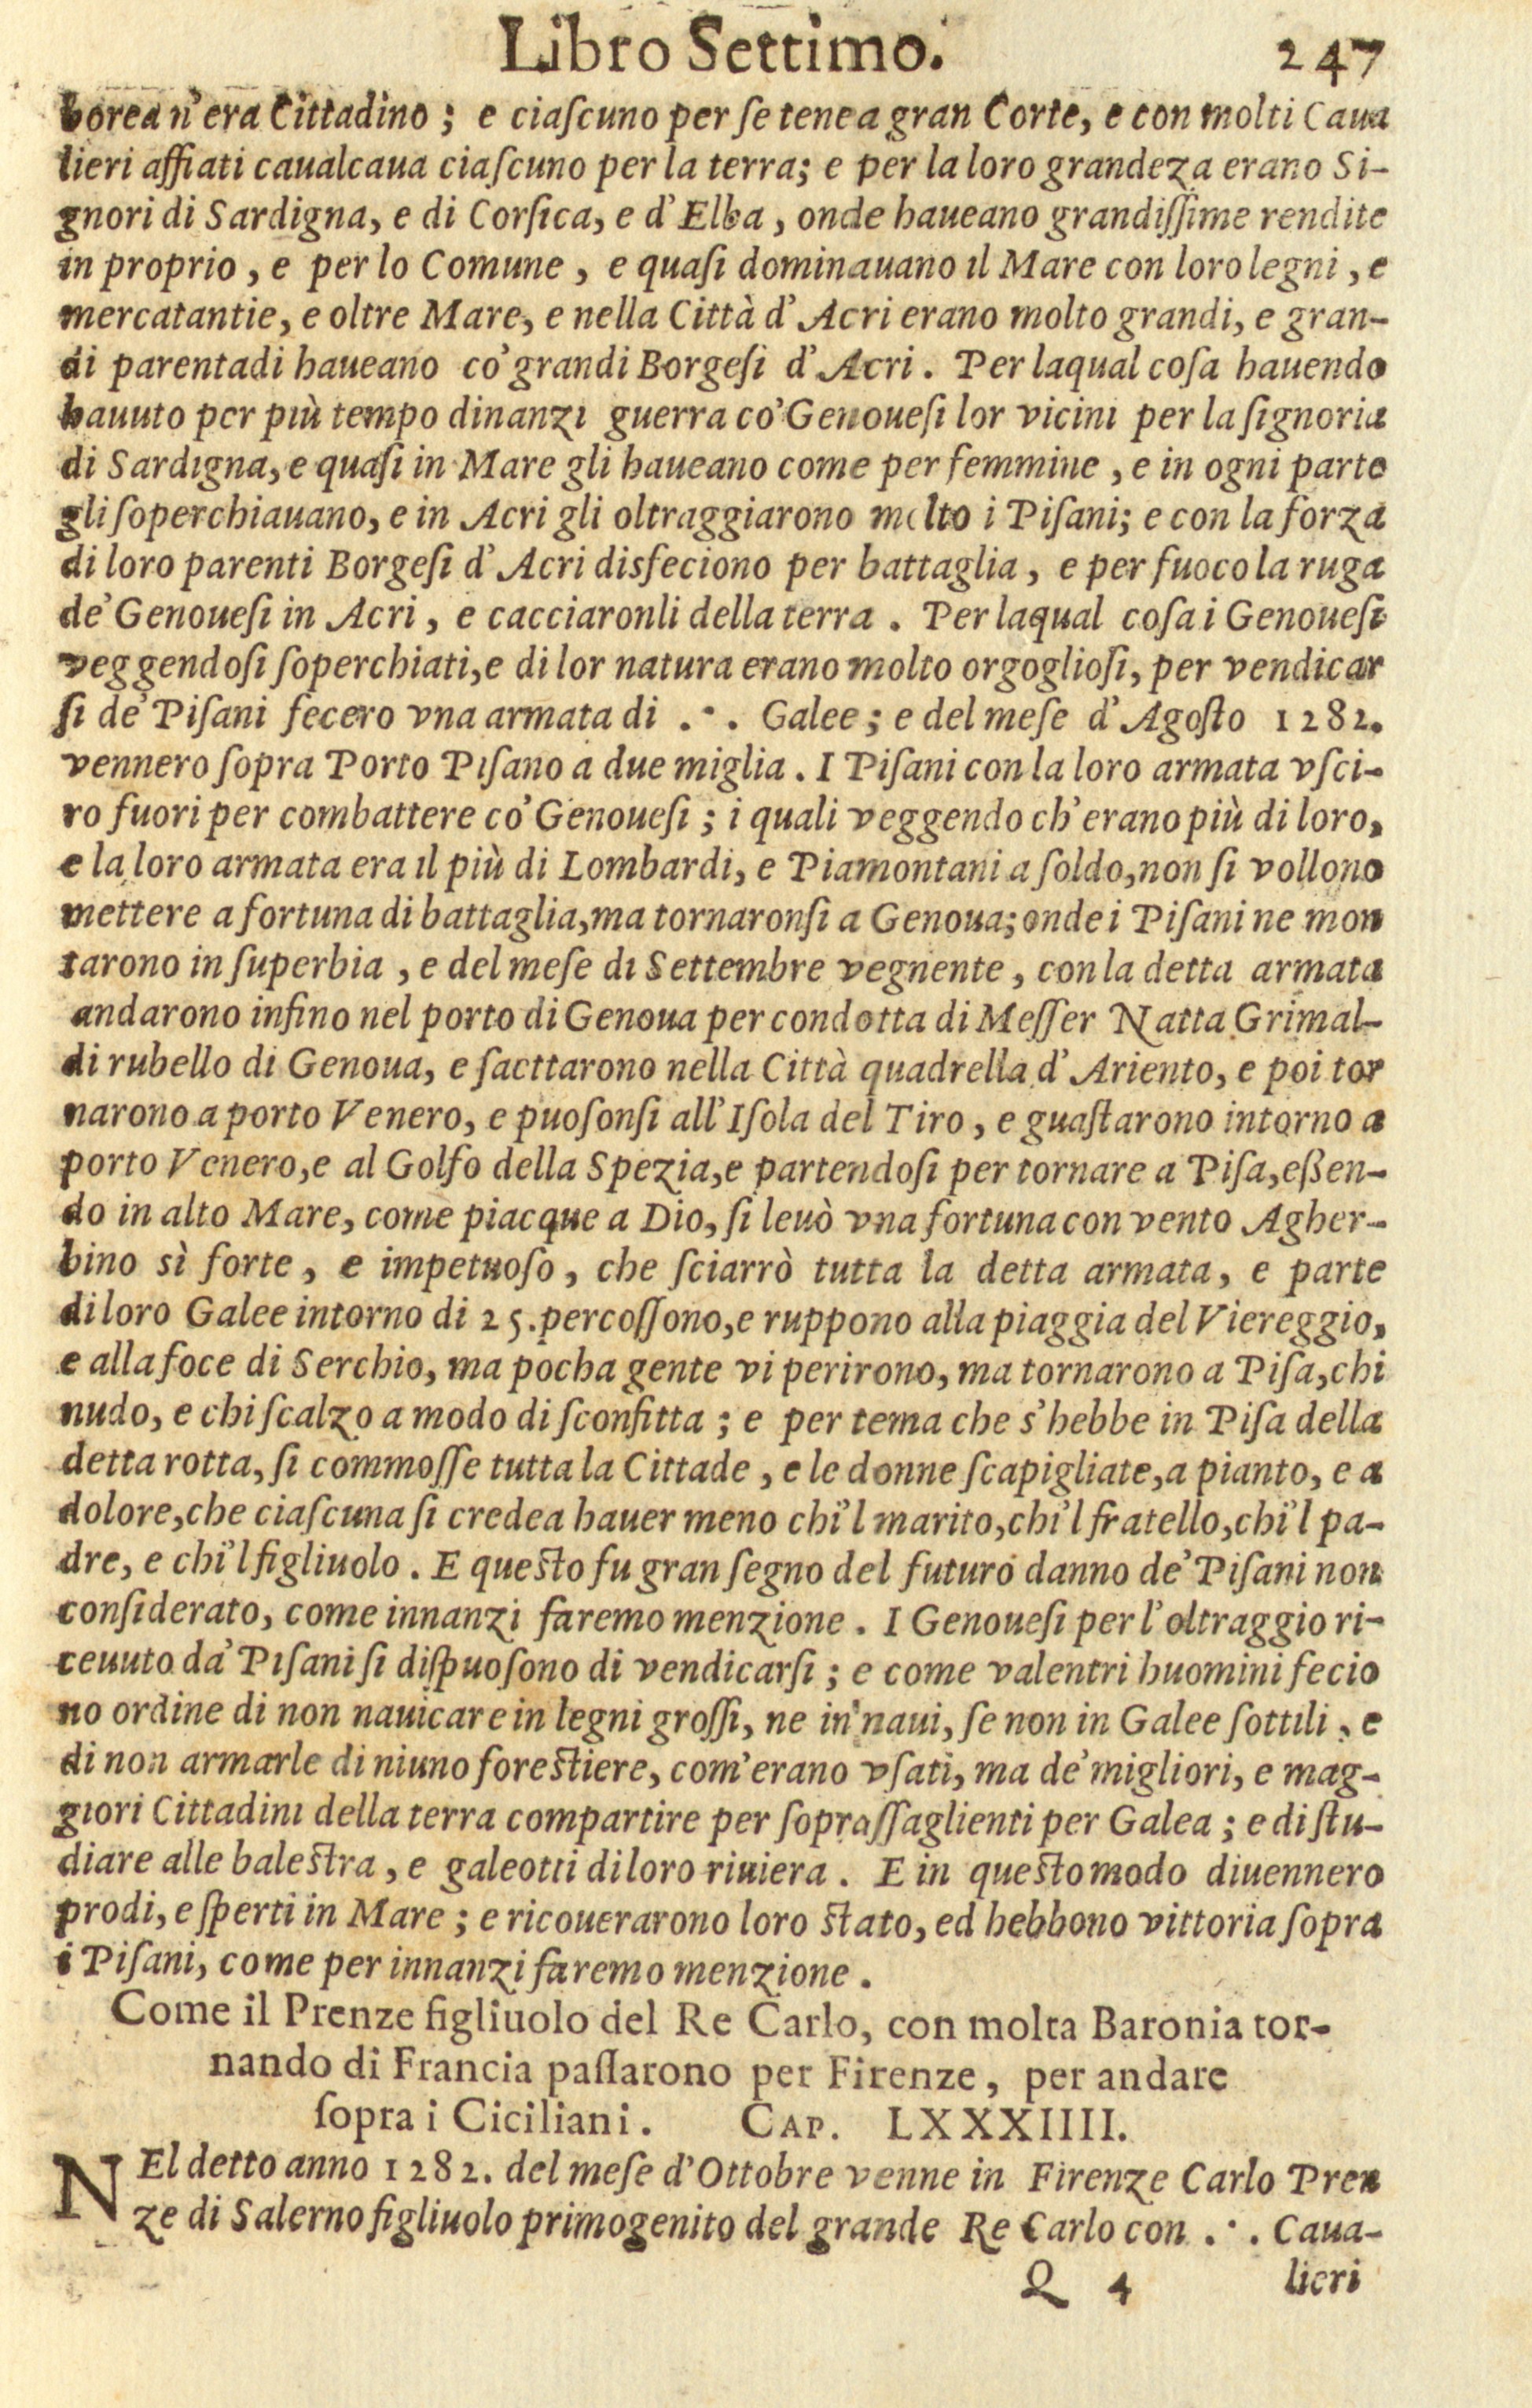 Libro Settimo. 247
borea n'era Cittadino ; e ciaſcuno per ſe tenea gran Corte, e con molti Caua
lieri affiati caualcaua ciaſcuno per la terra; e per la loro grandeza erano Si-
gnori di Sardigna, e di Corſica, e d'Elba , onde haueano grandiſſime rendite
in proprio , e per lo Comune , e quaſi dominauano il Mare con loro legni , e
mercatantie, e oltre Mare, e nella Città d'Acri erano molto grandi, e gran-
di parentadi haueano co' grandi Borgeſi d'Acri . Per laqual coſa hauendo
hauuto per più tempo dinanzi guerra co' Genoueſi lor vicini per la ſignoria
di Sardigna, e quaſi in Mare gli haueano come per femmine , e in ogni parte
gli ſoperchiauano, e in Acri gli oltraggiarono molto i Piſani; e con la forza
di loro parenti Borgeſi d'Acri disfeciono per battaglia , e per fuoco la ruga
de' Genoueſi in Acri , e cacciaronli della terra . Per laqual coſa i Genoueſi
veggendoſi ſoperchiati, e di lor natura erano molto orgoglioſi, per vendicar
ſi de' Piſani fecero vna armata di .·. Galee ; e del meſe d'Agoſto 1282.
vennero ſopra Porto Piſano a due miglia . I Piſani con la loro armata vſci-
ro fuori per combattere co' Genoueſi ; i quali veggendo ch'erano più di loro,
e la loro armata era il più di Lombardi, e Piamontani a ſoldo, non ſi vollono
mettere a fortuna di battaglia, ma tornaronſi a Genoua; onde i Piſani ne mon
tarono in ſuperbia , e del meſe di Settembre vegnente , con la detta armata
andarono infino nel porto di Genoua per condotta di Meſſer Natta Grimal-
di rubello di Genoua, e ſaettarono nella Città quadrella d'Ariento, e poi tor
narono a porto Venero, e puoſonſi all'Iſola del Tiro , e guaſtarono intorno a
porto Venero, e al Golfo della Spezia, e partendoſi per tornare a Piſa, eßen-
do in alto Mare, come piacque a Dio, ſi leuò vna fortuna con vento Agher-
bino sì forte , e impetuoſo , che ſciarrò tutta la detta armata , e parte
di loro Galee intorno di 25. percoſſono, e ruppono alla piaggia del Viereggio,
e alla foce di Serchio, ma pocha gente vi perirono, ma tornarono a Piſa, chi
nudo, e chi ſcalzo a modo di ſconfitta ; e per tema che s'hebbe in Piſa della
detta rotta, ſi commoſſe tutta la Cittade , e le donne ſcapigliate, a pianto, e a
dolore, che ciaſcuna ſi credea hauer meno chi'l marito, chi'l fratello, chi'l pa-
dre, e chi'l figliuolo . E queſto fu gran ſegno del futuro danno de' Piſani non
conſiderato, come innanzi faremo menzione . I Genoueſi per l'oltraggio ri-
ceuuto da' Piſani ſi diſpuoſono di vendicarſi ; e come valentri huomini fecio
no ordine di non nauicare in legni groſſi, ne in naui, ſe non in Galee ſottili , e
di non armarle di niuno foreſtiere, com'erano vſati, ma de' migliori, e mag-
giori Cittadini della terra compartire per ſopraſſaglienti per Galea ; e di ſtu-
diare alle baleſtra , e galeotti di loro riuiera . E in queſto modo diuennero
prodi, e ſperti in Mare ; e ricouerarono loro ſtato, ed hebbono vittoria ſopra
i Piſani, come per innanzi faremo menzione .
Come il Prenze figliuolo del Re Carlo, con molta Baronia tor-
nando di Francia paſſarono per Firenze , per andare
ſopra i Ciciliani . CAP. LXXXIIII.
NEl detto anno 1282. del meſe d'Ottobre venne in Firenze Carlo Pren
ze di Salerno figliuolo primogenito del grande Re Carlo con .·. Caua-
Q 4 lieri